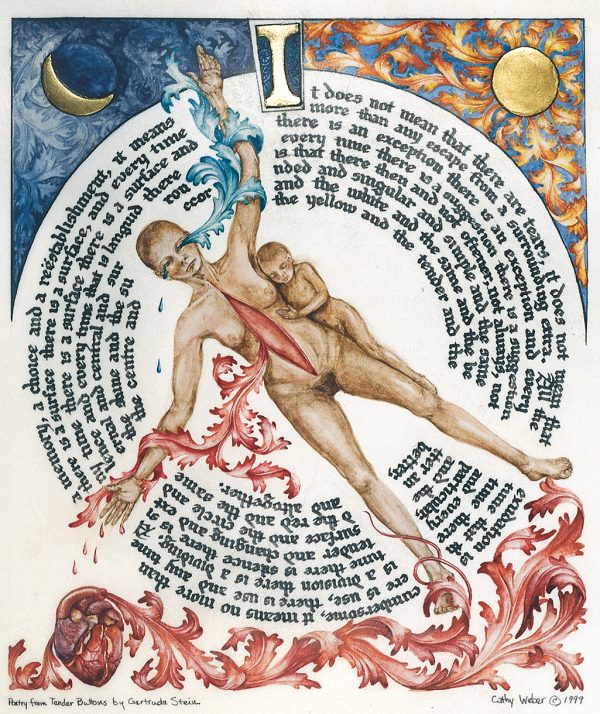 It does not mean that there are tears, it does not mean that exudation is cumbersome, it means no more than a memory, a choice and a reestablishment, it means
more than any escape from a surrounding extra. All the time that there is use, there is use and any time there is a surface there is a surface, and every time
there is an exception there is an exception and every time there is a division there is a dividing. Any time there is a surface there is a surface and
every time there is a suggestion there is a suggestion and every time there is silence there is silence and every time that is languid there
is that there then and not oftener, not always, not particular, tender and changing and external and central and surrou
nded and singular and simple and the same and the surface and the circle and the shine and the succor
and the white and the same and the better and the red and the same and the centre and
the yellow and the tender and the better, and altogether.
Poetry from Tender Buttons by Gertrude Stein
Cathy Weber © 1999